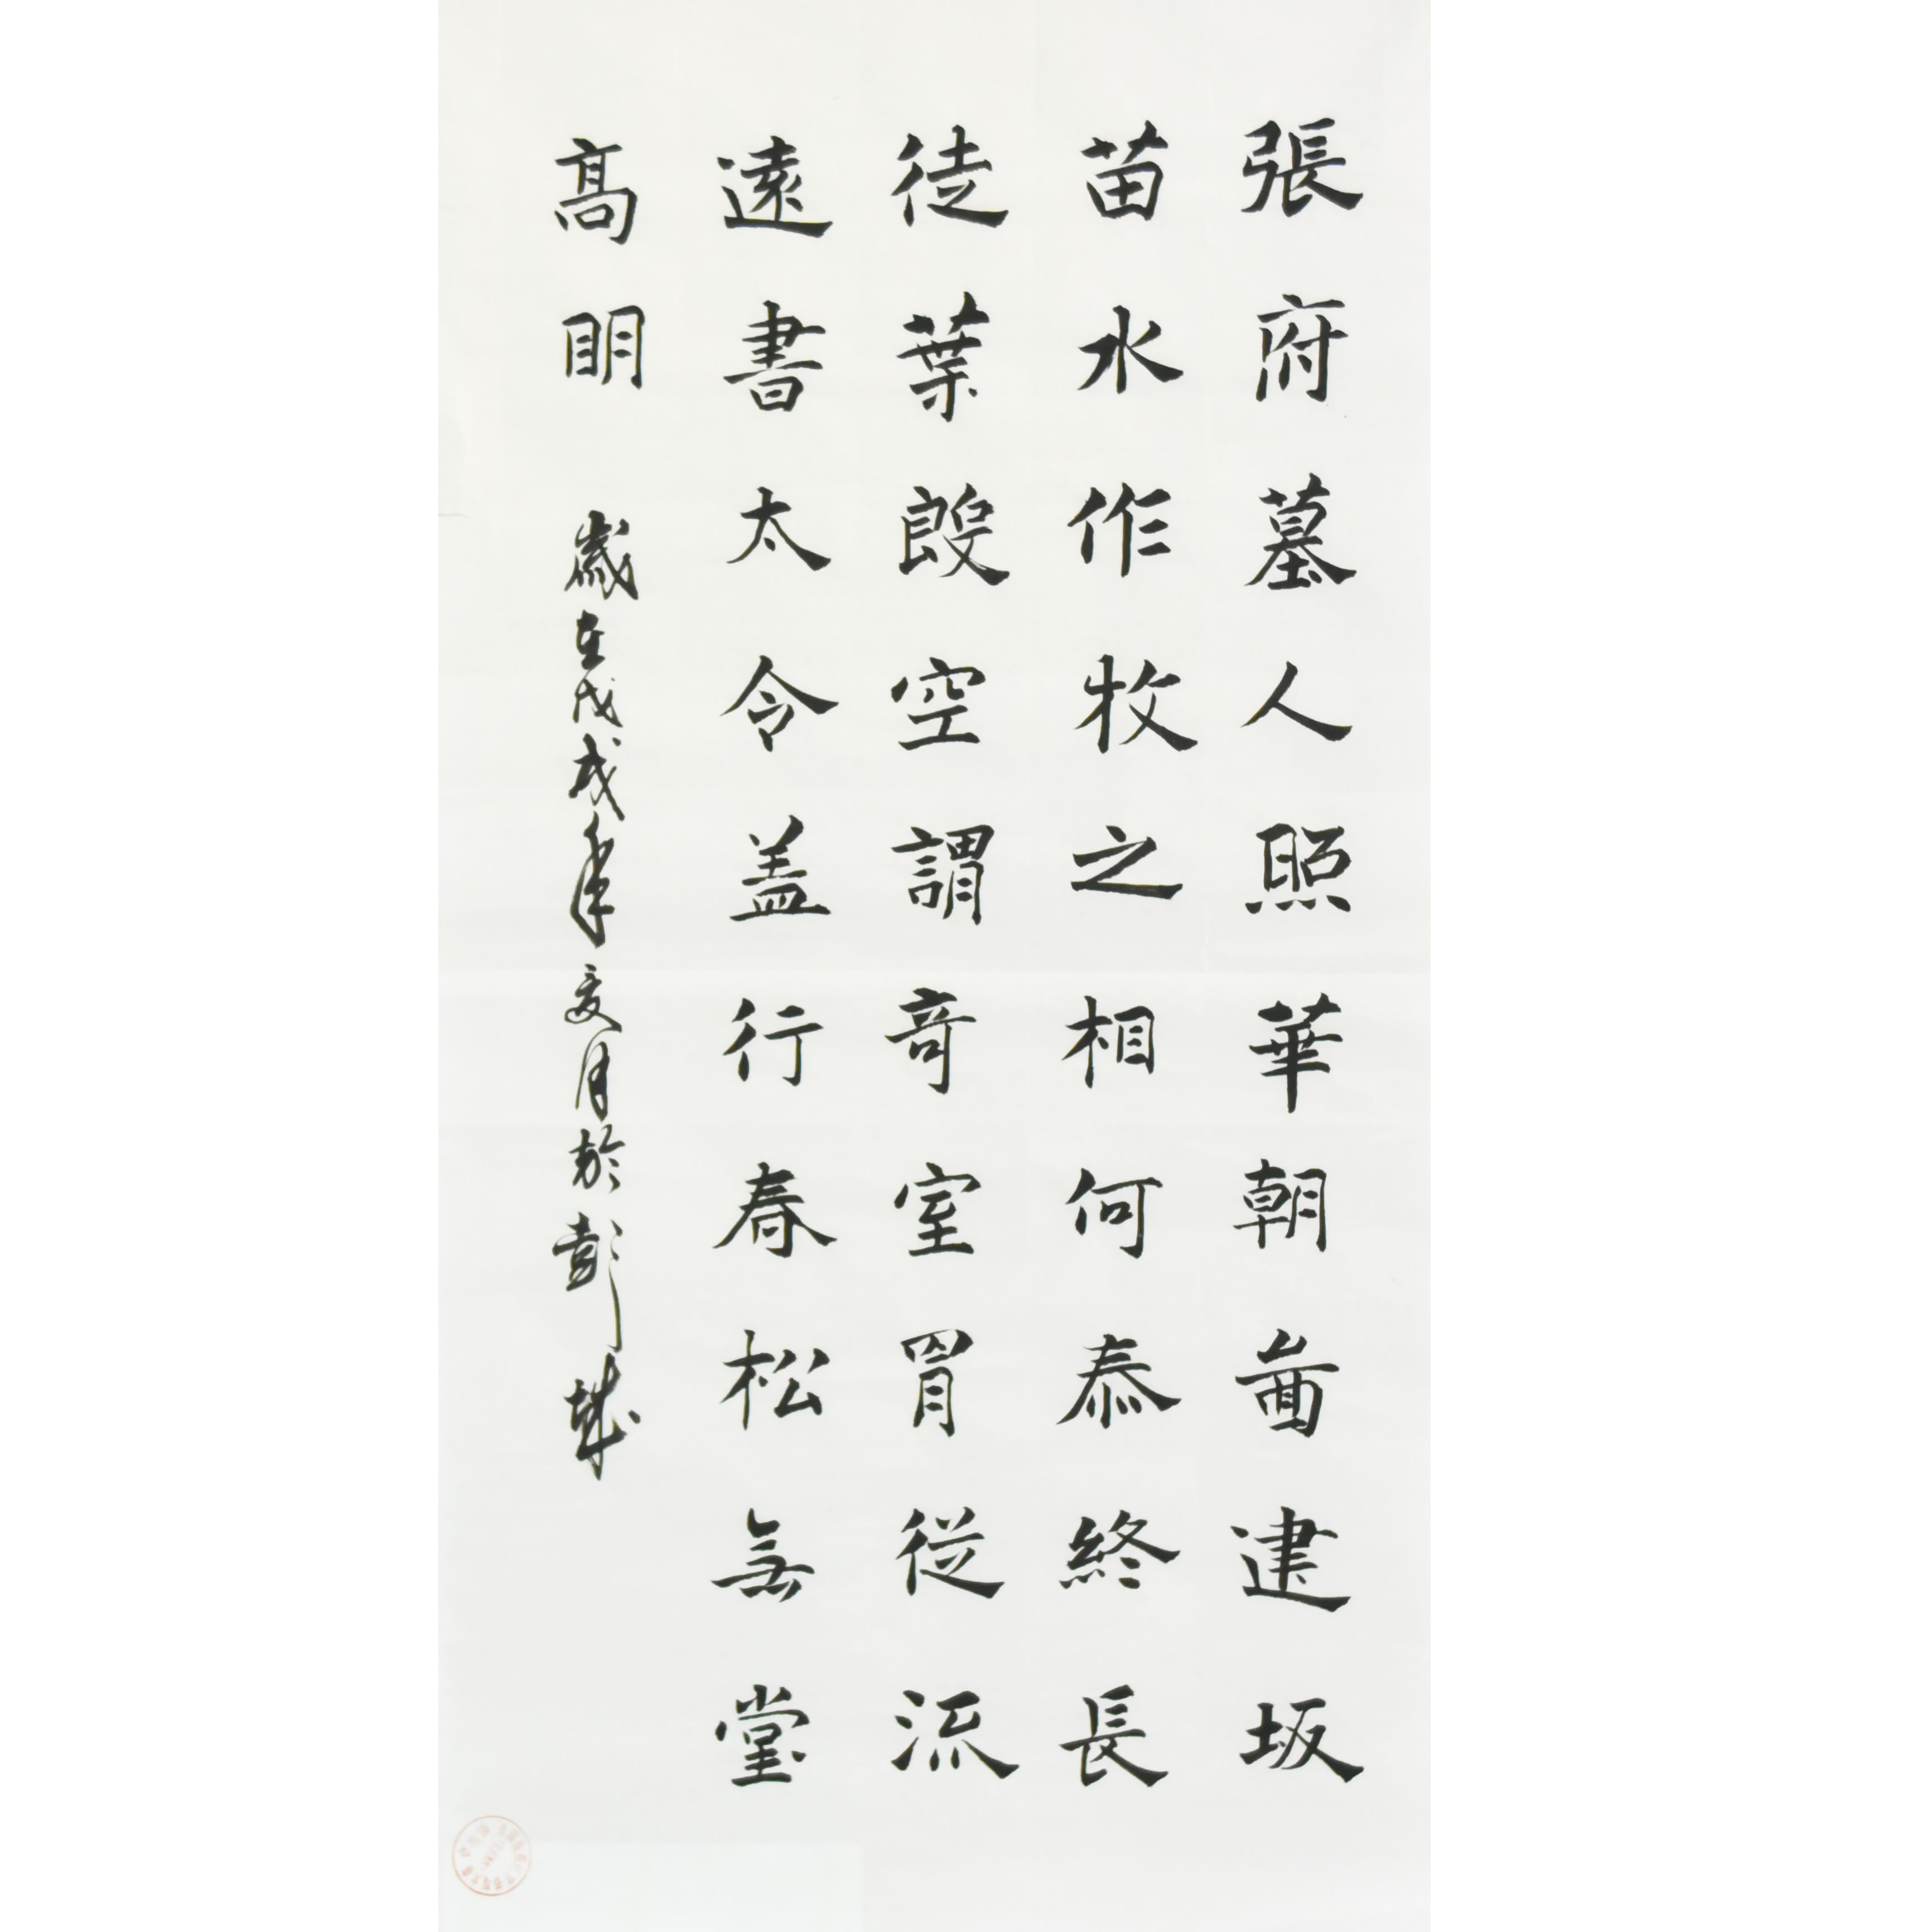 張府墓人照華朝啚建坂
苗水作牧之相何恭終長
徒葉段空謂奇室胃從流
遠書太令盖行春松無堂
高明 歲在戊戌年夏月於彭城